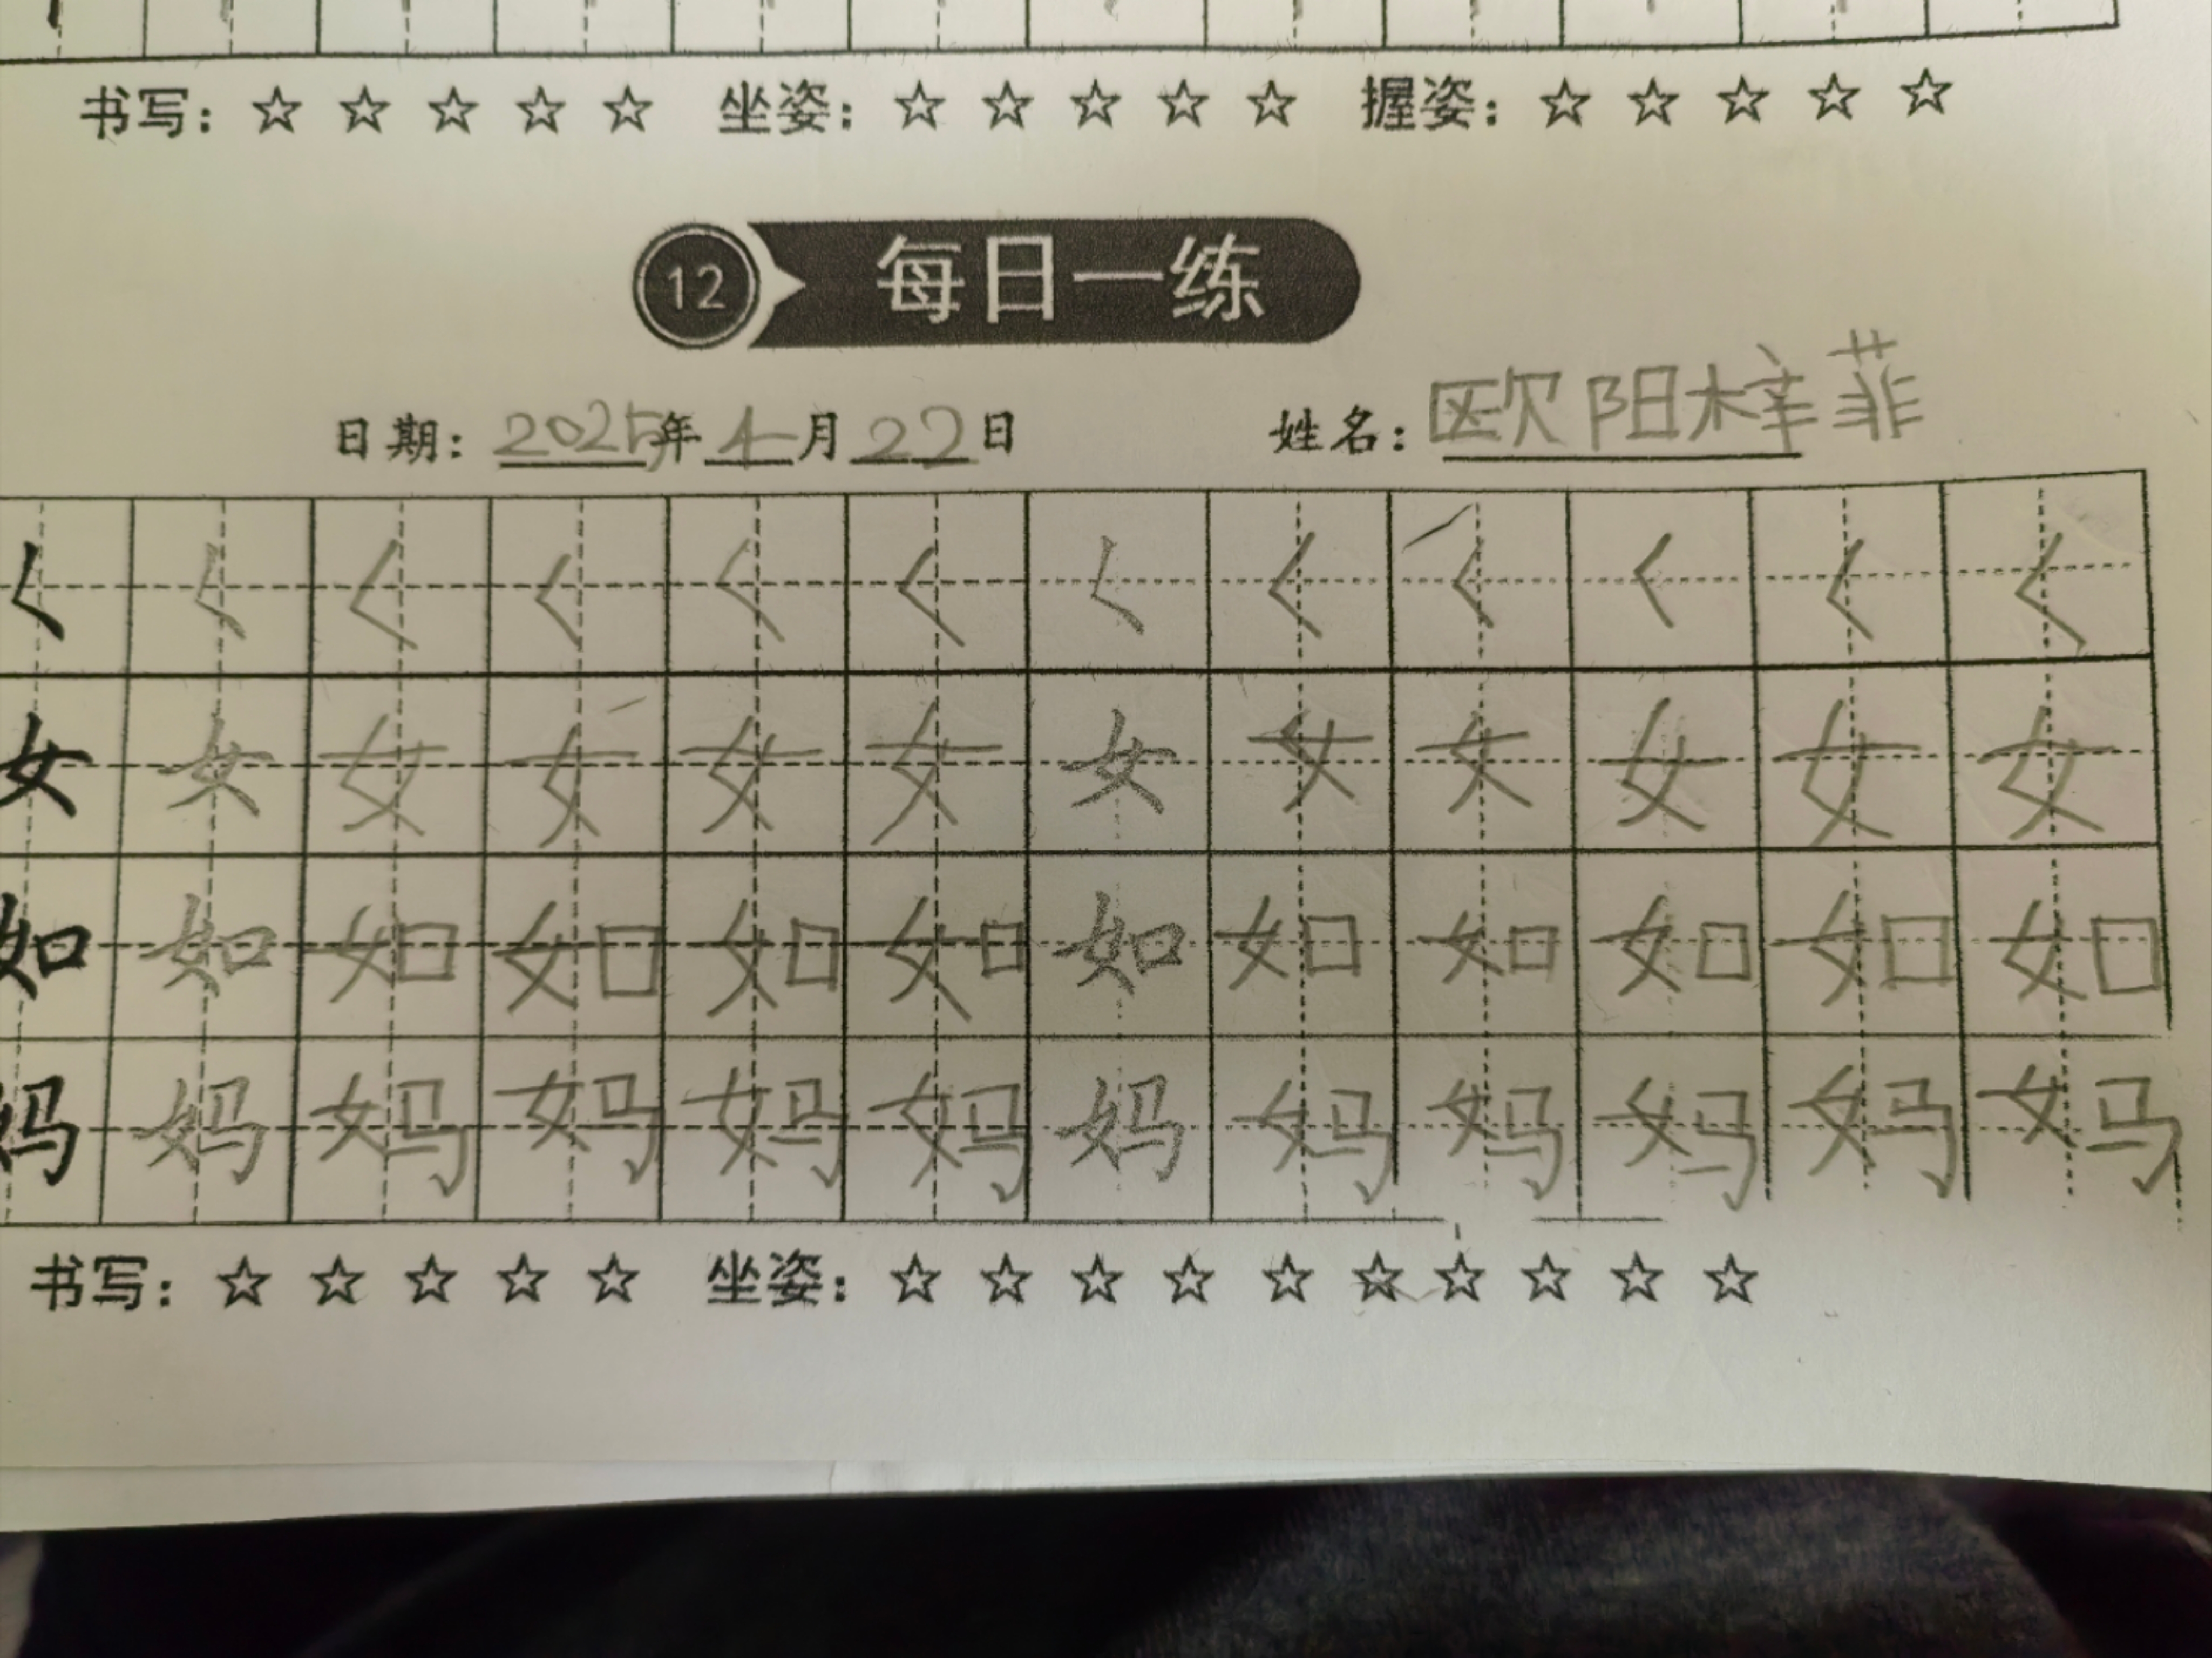 书写：☆☆☆☆☆ 坐姿：☆☆☆☆☆ 握姿：☆☆☆☆☆
12 每日一练
日期：2025年4月22日 姓名：欧阳梓菲
𡿨 𡿨 𡿨 𡿨 𡿨 𡿨 𡿨 𡿨 𡿨 𡿨 𡿨 𡿨
女 女 女 女 女 女 女 女 女 女 女 女
如 如 如 如 如 如 如 如 如 如 如 如
妈 妈 妈 妈 妈 妈 妈 妈 妈 妈 妈 妈
书写：☆☆☆☆☆ 坐姿：☆☆☆☆☆☆☆☆☆☆